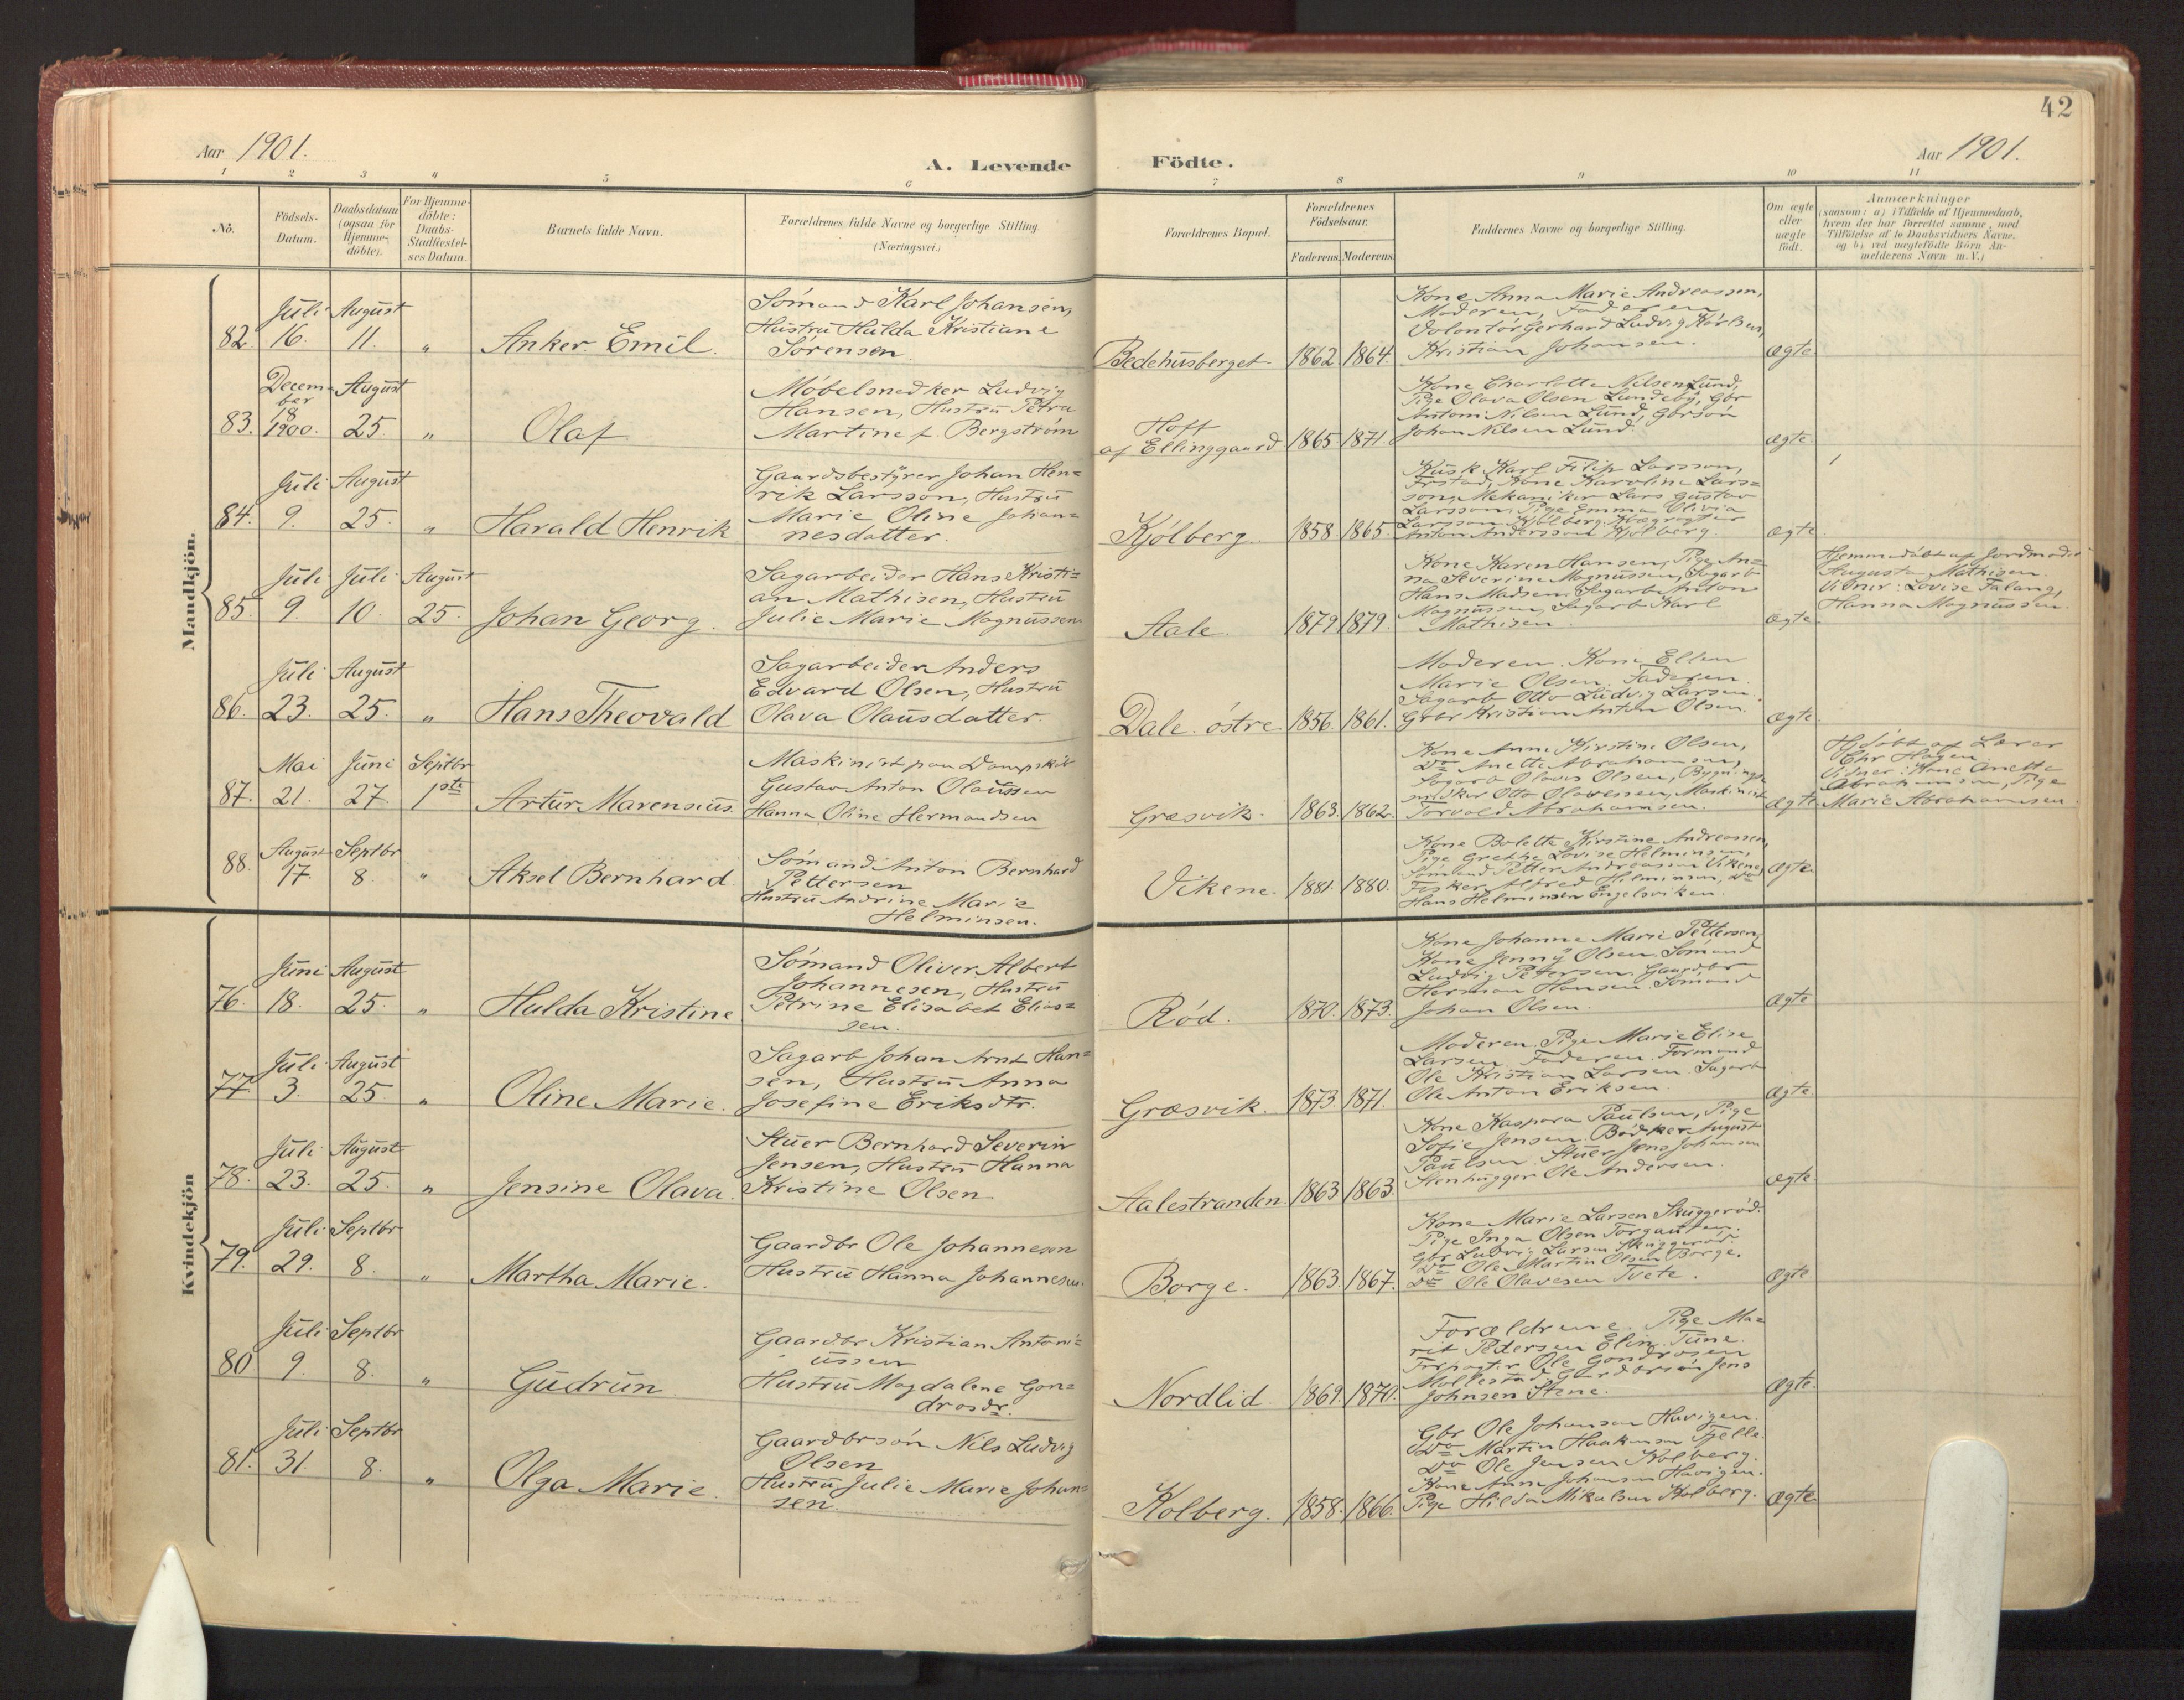 42
Aar 1901.
A. Levende Födte.
Aar 1901.
1 2 3 4 5 6 7 8 9 10 11
No.
Födsels-
Datum.
Daabsdatum
(ogsaa for
Hjemme-
döbte).
For Hjemme-
döbte:
Daabs-
Stadfæstel-
ses Datum.
Barnets fulde Navn.
Forældrenes fulde Navne og borgerlige Stilling.
(Næringsvei.)
Forældrenes Bopæl.
Forældrenes
Födselsaar.
Faderens. Moderens.
Faddernes Navne og borgerlige Stilling.
Om ægte
eller
uægte
födt.
Anmærkninger
(saasom: a) i Tilfælde af Hjemmedaab,
hvem der har forrettet samme, med
Tilföielse af to Daabsvidners Navne,
og b) ved uægtefödte Börn An-
melderens Navn m. V.)
Mandkjön.
82. Juli 16. August 11. "
Anker Emil.
Sómand Karl Johansen,
Hustru Hulda Kristiane
Sörensen.
Bedehusberget 1862 1864.
Kone Anna Marie Andreassen,
Moderen, Faderen
Volontör Gerhard Ludvig Karlsen,
Kristian Johansen.
ægte.
83. Decem-
ber
18
1900.
August 25. "
Olaf
Möbelsnedker Ludvig
Hansen, Hustru Petra
Martine f. Bergström
Hoff
af Ellinggaard 1865 1871.
Kone Charlotte Nilsen Lund,
Pige Olava Olsen Lundeby, Gbr
Antoni Nilsen Lund, Gbrsön
Johan Nilsen Lund.
ægte.
84. Juli 9. August 25. "
Harald Henrik
Gaardsbestyrer Johan Hen-
rik Larsson, Hustru
Marie Oline Johan-
nesdatter.
Kjölberg 1858 1865.
Kusk Karl Filip Larsson,
Kone Karoline Lars-
son, Mekaniker Lars Gustav
Larsson, Pige Emma Olivia
Larsson Kjölberg,
Anton Andersson Kjölberg.
ægte
85. Juli 9. Juli 10. August 25.
Johan Georg.
Sagarbeider Hans Kristi-
an Mathisen, Hustru
Julie Marie Magnussen
Aale. 1879 1879.
Kone Karen Hansen, Pige An-
na Severine Magnussen, Sagarb
Hans Madsen, Sagarb Anton
Magnussen, Sagarb Karl
Mathisen.
ægte.
Hjemmedöbt af Jordmoder
Augusta Mathisen.
Vidner: Lovise Falang,
Hanna Magnussen.
86. Juli 23. August 25. "
Hans Theovald
Sagarbeider Anders
Edvard Olsen, Hustru
Olava Olausdatter.
Dale östre 1856. 1861.
Moderen. Kone Ellen
Marie Olsen. Faderen.
Sagarb Otto Ludvig Larsen.
Gbr Kristian Anton Olsen.
ægte
87. Mai 21. Juni 27. Septbr 1ste
Artur Marensius.
Maskinist paa Dampskib
Gustav Anton Olaussen
Hanna Oline Hermandsen
Græsvik. 1863. 1862.
Kone Anne Kirstine Olsen,
Do Anette Abrahamsen,
Sagarb Olavus Olsen, Bygnings-
snedker Otto Olavessen, Maskinist
Torvald Abrahamsen.
ægte
Hjdöbt af Lærer
Chr Hagen.
Vidner: Kone Anette
Abrahamsen, Pige
Marie Abrahamsen.
88. August 17. Septbr 8. "
Aksel Bernhard
Sómand Anton Bernhard
Pettersen
Hustru Andrine Marie
Helminsen.
Vikene. 1881. 1880.
Kone Bolette Kirstine Andreassen,
Pige Grethe Lovise Helminsen,
Sömand Petter Andreassen Vikene,
Fisker Alfred Helminsen, Do
Hans Helminsen Engelsviken.
ægte
Kvindekjön
76. Juni 18. August 25. "
Hulda Kristine
Sómand Oliver Albert
Johannesen, Hustru
Petrine Elisabet Elias-
sen.
Röd. 1870. 1873.
Kone Johanne Marie Pettersen,
Kone Jenny Olsen. Sömand
Ludvig Petersen. Gaardbr
Herman Hansen. Sömand
Johan Olsen.
ægte
77. Juli 3. August 25. "
Oline Marie.
Sagarb Johan Arnt Han-
sen, Hustru Anna
Josefine Eriksdtr.
Græsvik. 1873. 1871.
Moderen. Pige Marie Elise
Larsen. Faderen. Formand
Ole Kristian Larsen. Sagarb
Ole Anton Eriksen.
ægte.
78. Juli 23. August 25. "
Jensine Olava.
Stuer Bernhard Severin
Jensen, Hustru Hanna
Kristine Olsen
Aalestranden. 1863 1863.
Kone Kaspara Paulsen, Pige
Sofie Jensen. Bödker August
Paulsen. Stuer Jens Johansen
Stenhugger Ole Andersen.
ægte
79. Juli 29. Septbr 8. "
Martha Marie.
Gaardbr Ole Johannesen
Hustru Hanna Johannesen.
Borge. 1863. 1867.
Kone Marie Larsen Skuggeröd.
Pige Inga Olsen Torgauten.
Gbr Ludvig Larsen Skuggeröd.
Do Ole Martin Olsen Borge.
Do Ole Olavesen Tvete.
ægte
80 Juli 9. Septbr 8. "
Gudrun.
Gaardbr Kristian Antoni-
ussen
Hustru Magdalene Gon-
drosdr.
Nordlid. 1869. 1870.
Forældrene. Pige Ma-
rit Pedersen Elin. Tune.
Ole Gondrosen
Mollestad, Gaardbrsön Jens
Johnsen Stene.
ægte.
81. Juli 31. Septbr 8. "
Olga Marie.
Gaardbrsön Nils Ludvig
Olsen
Hustru Julie Marie Johan-
sen.
Kolberg. 1858. 1866.
Gbr Ole Johansen Havigen.
Do Martin Haakensen Tjelle.
Do Ole Jensen Kolberg.
Kone Anne Johansen Havigen.
Pige Hilda Mikalsen Kolberg.
ægte